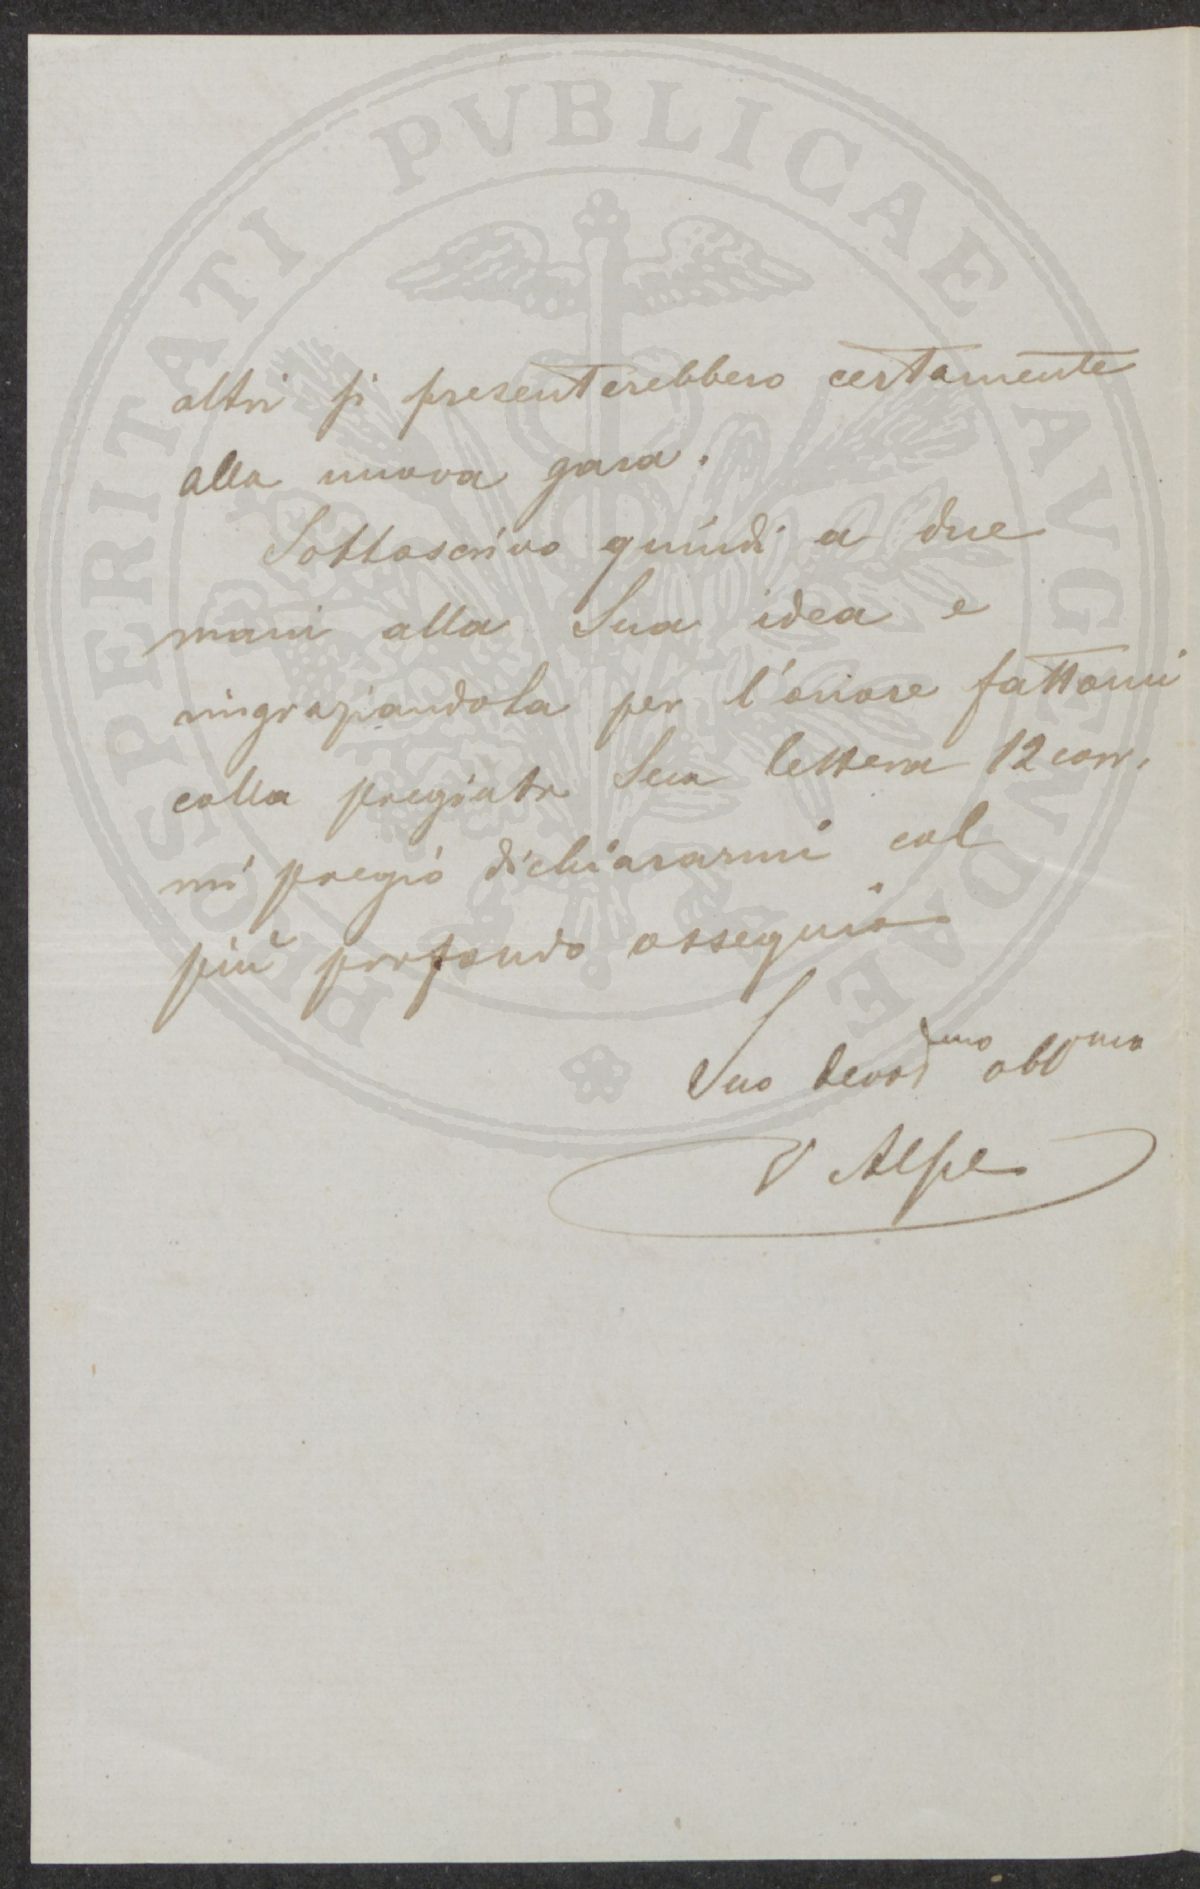 altri si presenterebbero certamente
alla nuova gara.
Sottoscrivo quindi a due
mani alla Sua idea e
ringraziandola per l'onore fattomi
colla pregiata Sua lettera 12 corr.
mi pregio dichiararmi col
più profondo ossequio
Suo devotmo obbmo
V Alpe
PROSPERITATI PVBLICAE AVGENDAE